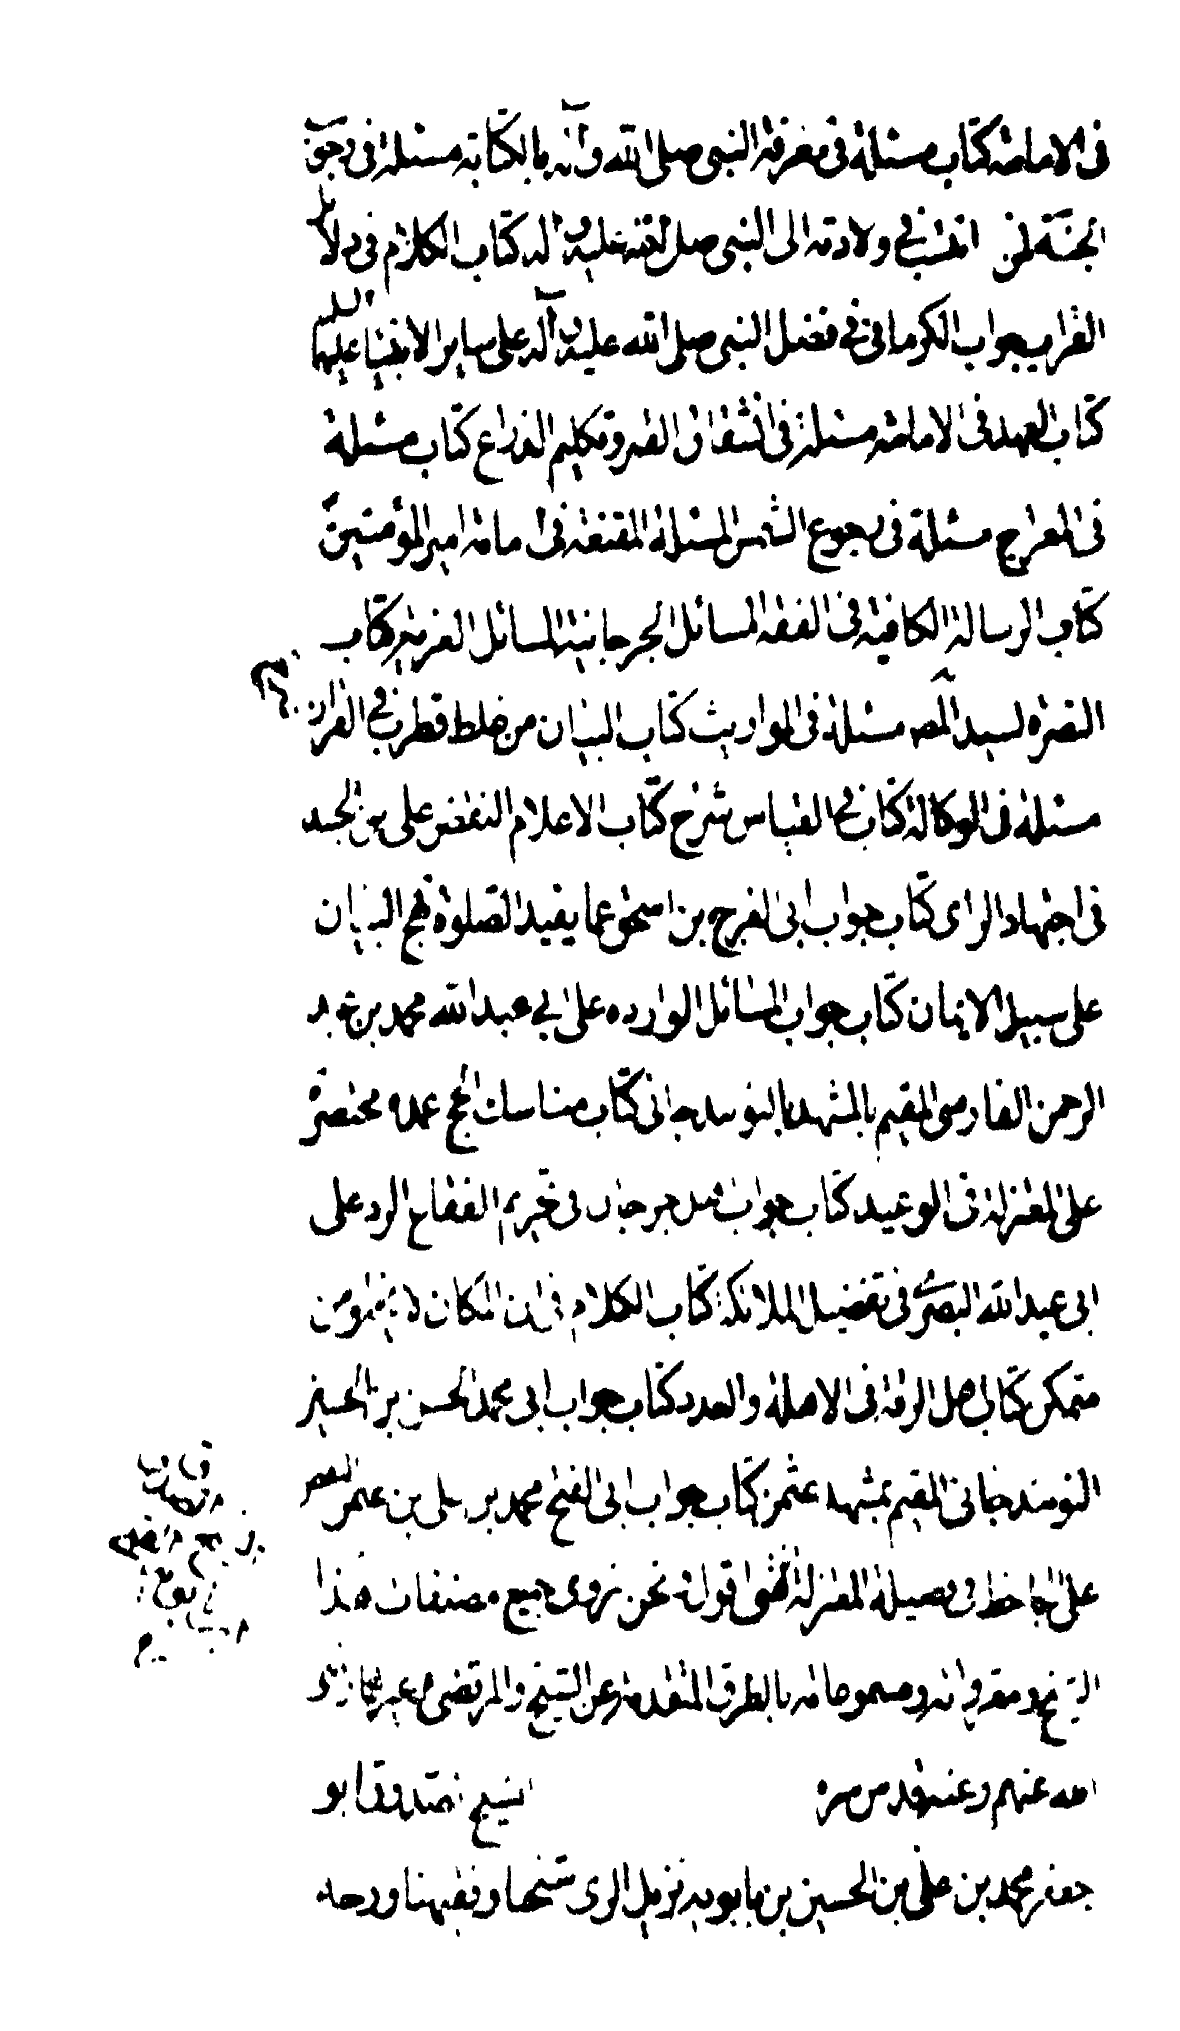 في الامامة كتاب مسئلة في معرفة النبي صلى الله وآله بالكتابة مسئلة في وجوب
الجنة لمن انتسب في ولادته الى النبي صلى الله عليه وآله كتاب الكلام في دلائل
القران جواب الكرماني في فضل النبي صلى الله عليه وآله على ساير الانبياء عليهم السلم
كتاب العهد في الامامة مسئلة في انشقاق القمر وتكليم الذراع كتاب مسئلة
في المعراج مسئلة في رجوع الشمس المسئلة المقنعة في امامة امير المؤمنين
كتاب الرسالة الكافية في الفقه المسائل الجرجانية المسائل الغرية كتاب
النصرة لسيد مسئلة في المواريث كتاب البيان من غلط قطرب في القران
مسئلة في الوكالة كتاب في القياس شرح كتاب الاعلام النقض على بن الجنيد
في اجتهاد الراى كتاب جواب ابى الفرج بن اسحق عما يفيد الصلوة نهج البيان
على سبيل الايمان كتاب جواب المسائل الوارده على ابي عبد الله محمد بن عبد
الرحمن الفارسى المقيم بالمشهد بالنوبندجانى كتاب مناسك الحج عمده مختصرة
على المعتزلة في الوعيد كتاب جواب اهل جرجان في تحريم الفقاع الرد على
ابى عبد الله البصرى في تفضيل الملائكة كتاب الكلام في ان المكان لا يخلو من
متمكن كتاب اهل الرقة في الاهلة والعدد كتاب جواب ابى محمد الحسن بن الحسين
النوبندجانى المقيم بمشهد عثمن كتاب جواب ابى الفتح محمد بن على بن عثمن النقض
على الجاحظ في فضيلة المعتزلة انتهى اقول نحن نروى جميع مصنفات هذا
الشيخ ومقرواته ومسموعاته بالطرق المتقدمة عن الشيخ والمرتضى وغيرهما رضى
الله عنهم وعنه قدس سره الشيخ الصدوق ابو
جعفر محمد بن على بن الحسين بن بابويه نزيل الرى شيخنا وفقيهنا ووجه